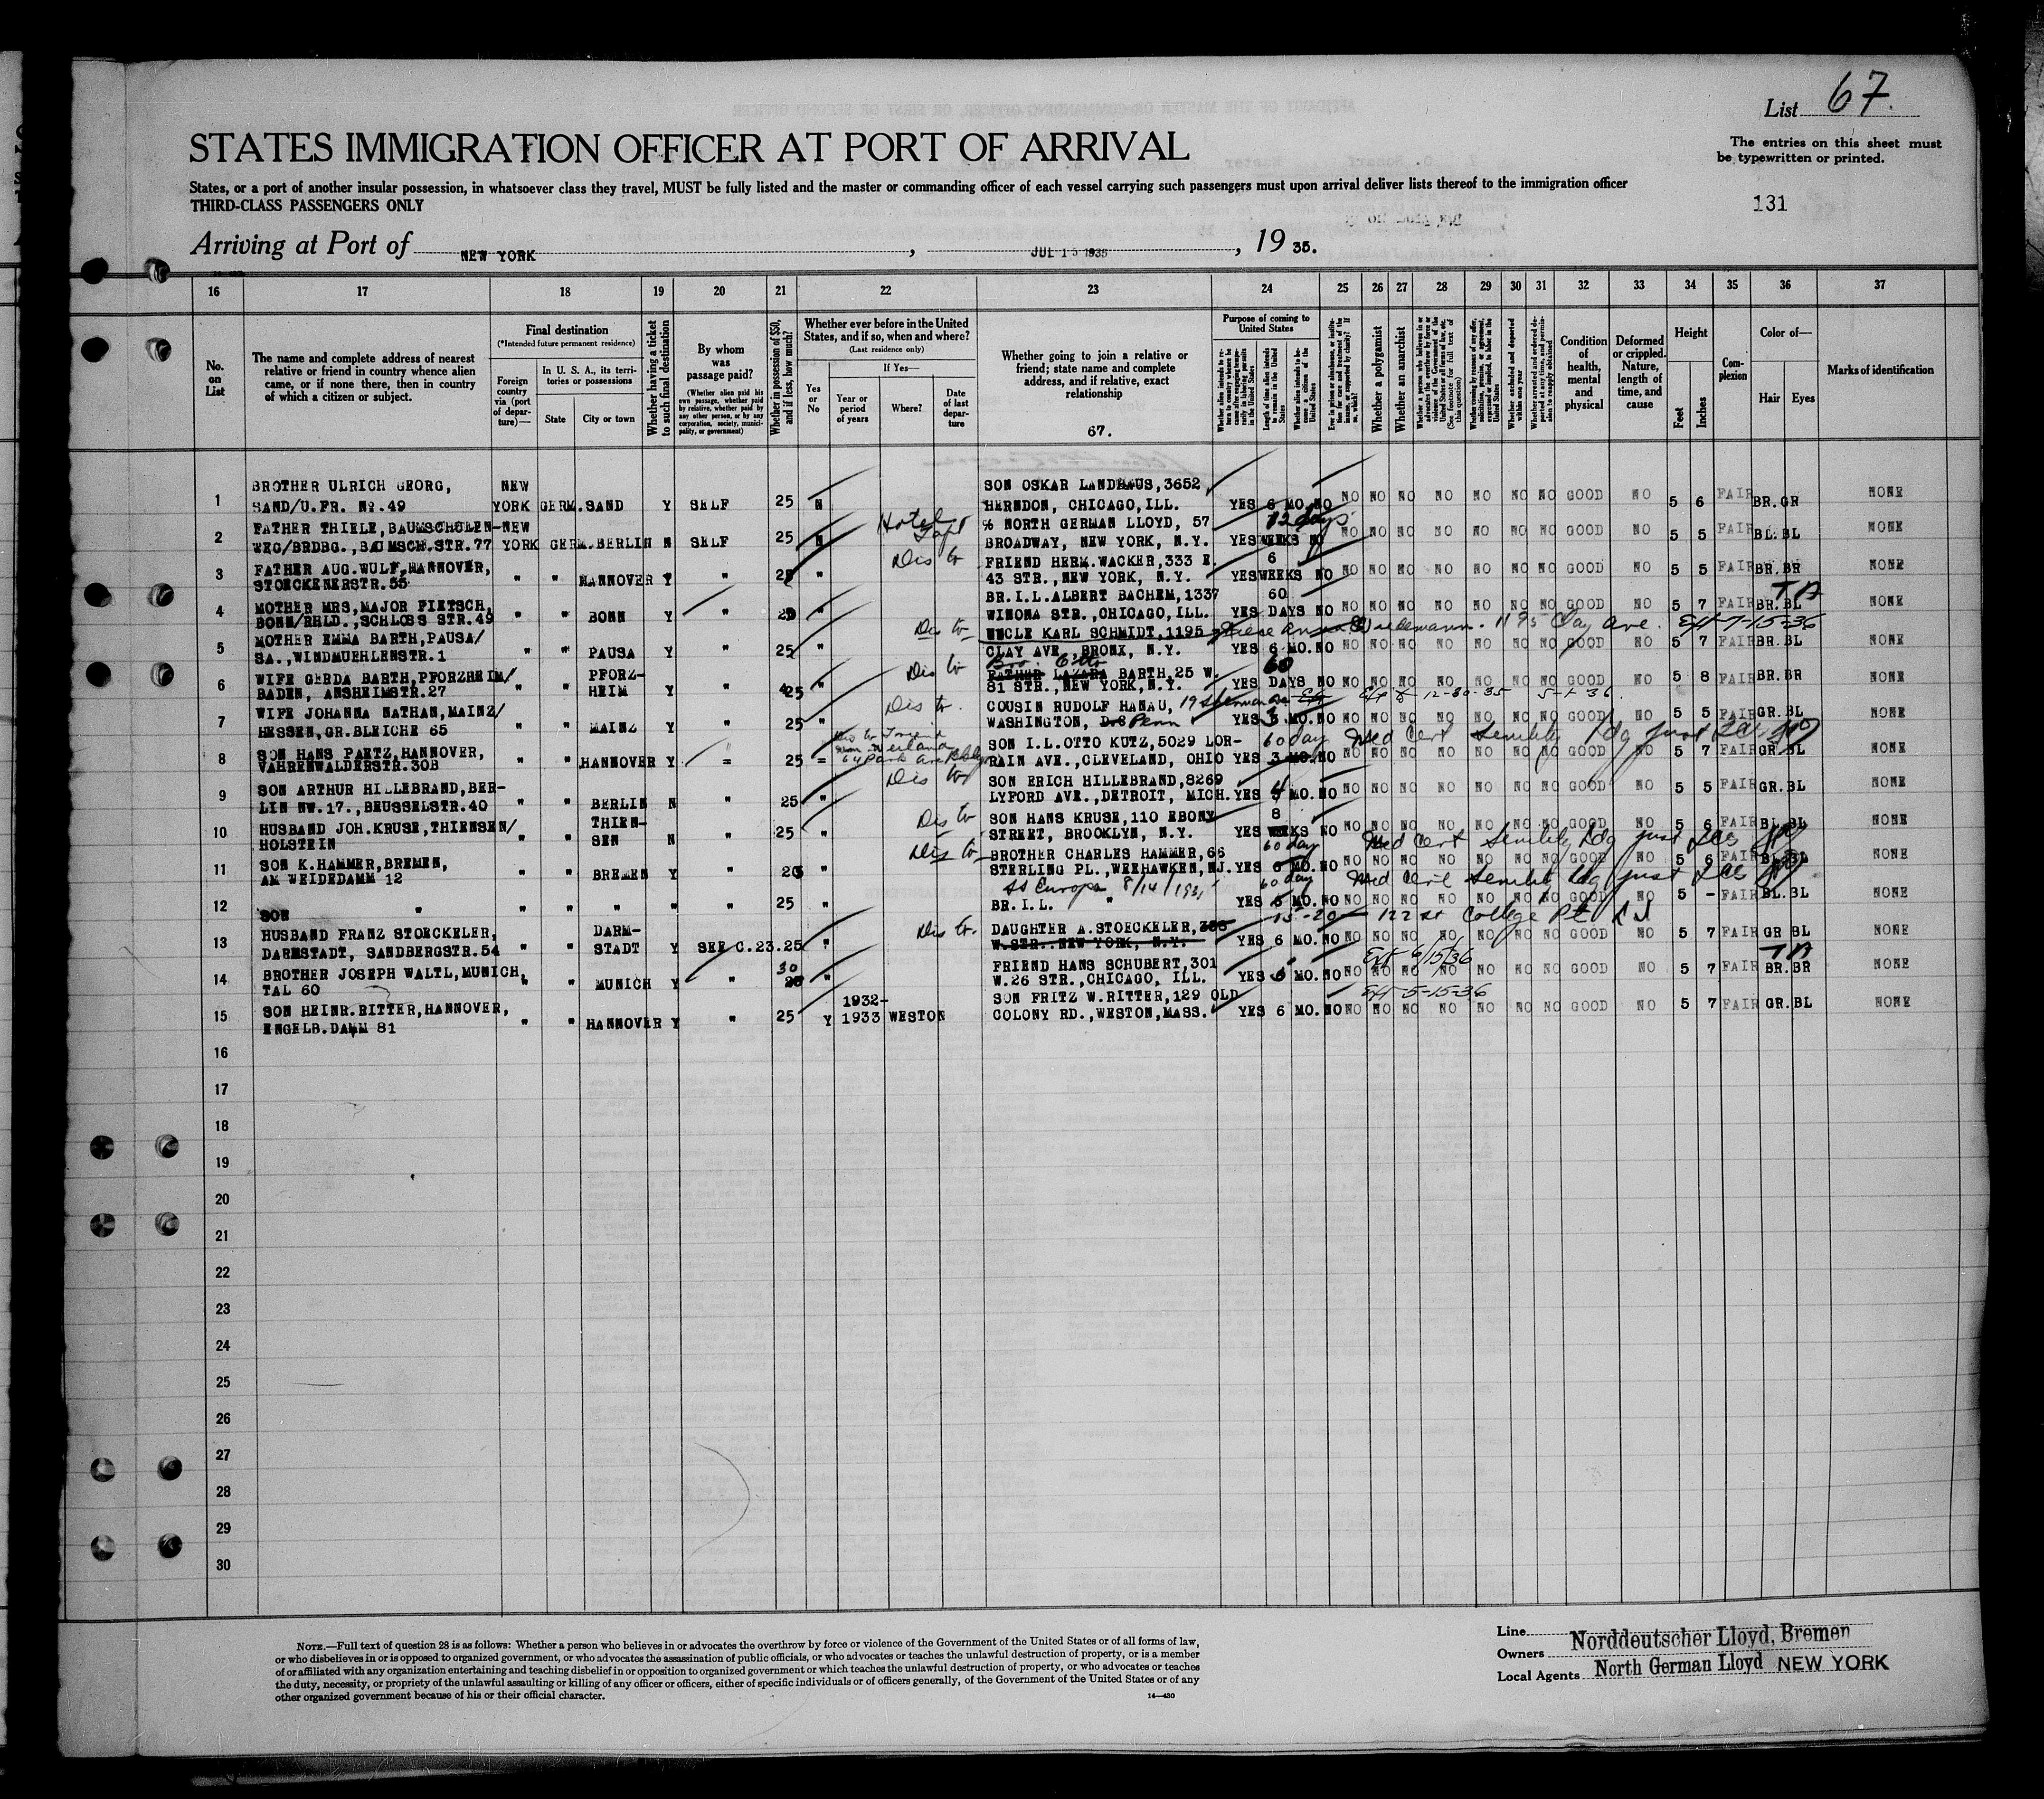 List 67.
STATES IMMIGRATION OFFICER AT PORT OF ARRIVAL
The entries on this sheet must
be typewritten or printed.
States, or a port of another insular possession, in whatsoever class they travel, MUST be fully listed and the master or commanding officer of each vessel carrying such passengers must upon arrival deliver lists thereof to the immigration officer
THIRD-CLASS PASSENGERS ONLY
131
Arriving at Port of NEW YORK, JUL 15 1935, 19 35.
16 17 18 19 20 21 22 23 24 25 26 27 28 29 30 31 32 33 34 35 36 37
No. on List
The name and complete address of nearest
relative or friend in country whence alien
came, or if none there, then in country
of which a citizen or subject.
Final destination
(*Intended future permanent residence)
Foreign country via (port of departure)—
In U. S. A., its territories or possessions
State
City or town
Whether having a ticket to such final destination
By whom was passage paid?
(Whether alien paid his own passage, whether paid by relative, whether paid by any other person, or by any corporation, society, municipality, or government)
Whether in possession of $50, and if less, how much?
Whether ever before in the United
States, and if so, when and where?
(Last residence only)
Yes or No
If Yes—
Year or period of years
Where?
Date of last departure
Whether going to join a relative or
friend; state name and complete
address, and if relative, exact
relationship
67.
Purpose of coming to United States
Length of time alien intends to remain in the United States
Whether a polygamist
Whether an anarchist
Condition of health, mental and physical
Deformed or crippled. Nature, length of time, and cause
Height
Feet
Inches
Complexion
Color of—
Hair
Eyes
Marks of identification
1 BROTHER ULRICH GEORG, NEW SON OSKAR LANDHAUS, 3652
SAND/U.FR. No.49 YORK GERM. SAND Y SELF 25 N HERNDON, CHICAGO, ILL. YES 6 MO. NO NO NO NO NO NO NO NO GOOD NO 5 6 FAIR BR. GR NONE
2 FATHER THIELE, BAUMSCHULEN- NEW Hotel % NORTH GERMAN LLOYD, 57 12 days
WEG/BRDBG., BAUMSCH.STR.77 YORK GERM. BERLIN N SELF 25 N BROADWAY, NEW YORK, N.Y. YES WEEKS NO NO NO NO NO NO NO NO GOOD NO 5 5 FAIR BL. BL NONE
3 FATHER AUG. WULF, HANNOVER, Dis to FRIEND HERM. WACKER, 333 E. 6
STOECKENERSTR. 55 " " HANNOVER Y " 25 " 43 STR., NEW YORK, N.Y. YES WEEKS NO NO NO NO NO NO NO NO GOOD NO 5 5 FAIR BR. BR NONE
4 MOTHER MRS, MAJOR PIETSCH, BR.I.L. ALBERT BACHEM, 1337 60 T A
BONN/RHLD., SCHLOSS STR. 49 " " BONN Y " " WINONA STR., CHICAGO, ILL. YES DAYS NO NO NO NO NO NO NO NO GOOD NO 5 7 FAIR BR. BL NONE
5 MOTHER EMMA BARTH, PAUSA/ Dis to UNCLE KARL SCHMIDT, 1195 1195 Clay Ave. Ext 7-15-36
SA., WINDMUEHLENSTR. 1 " " PAUSA Y " 25 " CLAY AVE, BRONX, N.Y. YES 6 MO. NO NO NO NO NO NO NO NO GOOD NO 5 7 FAIR BR. BL NONE
6 WIFE GERDA BARTH, PFORZHEIM/ PFORZ- Dis to Bro. Otto FATHER LAZARA BARTH, 25 W. 60
BADEN, ANSHEIMSTR. 27 " " HEIM Y " 25 " 81 STR., NEW YORK, N.Y. YES DAYS NO NO NO NO NO NO NO NO GOOD NO 5 8 FAIR BR. BR NONE
7 WIFE JOHANNA NATHAN, MAINZ/ Dis to COUSIN RUDOLF HANAU, 19 12-30-35 5-1-36
HESSEN, GR. BLEICHE 65 " " MAINZ Y " 25 " WASHINGTON, D.C. Penn YES 3 MO. NO NO NO NO NO NO NO NO GOOD NO 5 5 FAIR GR. BL NONE
8 SON HANS PAETZ, HANNOVER, Dis to Friend 64 Park SON I.L. OTTO KUTZ, 5029 LOR- 60 day Med Cert Senility
VAHRENWALDERSTR. 30B " " HANNOVER Y " 25 = RAIN AVE., CLEVELAND, OHIO YES 3 MO. NO NO NO NO NO NO NO NO GOOD NO 5 7 FAIR GR. BL NONE
9 SON ARTHUR HILLEBRAND, BER- Dis to SON ERICH HILLEBRAND, 8269
LIN NW. 17., BEUSSELSTR. 40 " " BERLIN N " 25 " LYFORD AVE., DETROIT, MICH. YES 4 MO. NO NO NO NO NO NO NO NO GOOD NO 5 5 FAIR GR. BL NONE
10 HUSBAND JOH. KRUSE, THIENSEN/ THIEN- Dis to SON HANS KRUSE, 110 EBONY 8
HOLSTEIN " " SEN N " 25 " STREET, BROOKLYN, N.Y. YES WEEKS NO NO NO NO NO NO NO NO GOOD NO 5 6 FAIR BL. BL NONE
11 SON K. HAMMER, BREMEN, Dis to BROTHER CHARLES HAMMER, 66 60 day Med Cert Senility
AM WEIDEDAMM 12 " " BREMEN Y " 25 " STERLING PL., WEEHAWKEN, N.J. YES 6 MO. NO NO NO NO NO NO NO NO GOOD NO 5 6 FAIR BL. BL NONE
12 SON " SS Europa 8/14/193 60 day Med Cert Senility
" " " " " 25 " BR. I.L. " YES 6 MO. NO NO NO NO NO NO NO NO GOOD NO 5 – FAIR BL. BL NONE
13 HUSBAND FRANZ STOECKELER, DARM- Dis to DAUGHTER A. STOECKELER, 15-20 122 st College Pt L I
DARMSTADT, SANDBERGSTR. 54 " " STADT Y SEE C.23. 25 " W. STR. NEW YORK, N.Y. YES 6 MO. NO NO NO NO NO NO NO NO GOOD NO 5 7 FAIR GR BL NONE
14 BROTHER JOSEPH WALTL, MUNICH, 30 FRIEND HANS SCHUBERT, 301 Ext 6/15/36 T A
TAL 60 " " MUNICH Y " " W. 26 STR., CHICAGO, ILL. YES 6 MO. NO NO NO NO NO NO NO NO GOOD NO 5 7 FAIR BR. BR NONE
15 SON HEINR. RITTER, HANNOVER, 1932- SON FRITZ W. RITTER, 129 OLD Ext 5-15-36
ENGELB. DAMM 81 " " HANNOVER Y " 25 Y 1933 WESTON COLONY RD., WESTON, MASS. YES 6 MO. NO NO NO NO NO NO NO NO GOOD NO 5 7 FAIR GR. BL NONE
16
17
18
19
20
21
22
23
24
25
26
27
28
29
30
NOTE.—Full text of question 28 is as follows: Whether a person who believes in or advocates the overthrow by force or violence of the Government of the United States or of all forms of law,
or who disbelieves in or is opposed to organized government, or who advocates the assassination of public officials, or who advocates or teaches the unlawful destruction of property, or is a member
of or affiliated with any organization entertaining and teaching disbelief in or opposition to organized government or which teaches the unlawful destruction of property, or who advocates or teaches
the duty, necessity, or propriety of the unlawful assaulting or killing of any officer or officers, either of specific individuals or of officers generally, of the Government of the United States or of any
other organized government because of his or their official character.
14—430
Line
Owners Norddeutscher Lloyd, Bremen
Local Agents North German Lloyd NEW YORK